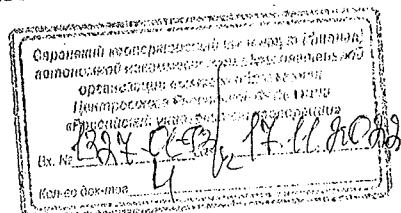 Саранский кооперативный институт (филиал)
автономной некоммерческой образовательной
организации высшего образования
Центросоюза Российской Федерации
«Российский университет кооперации»
Вх. № 17.11.2022
Кол-во док-тов 4